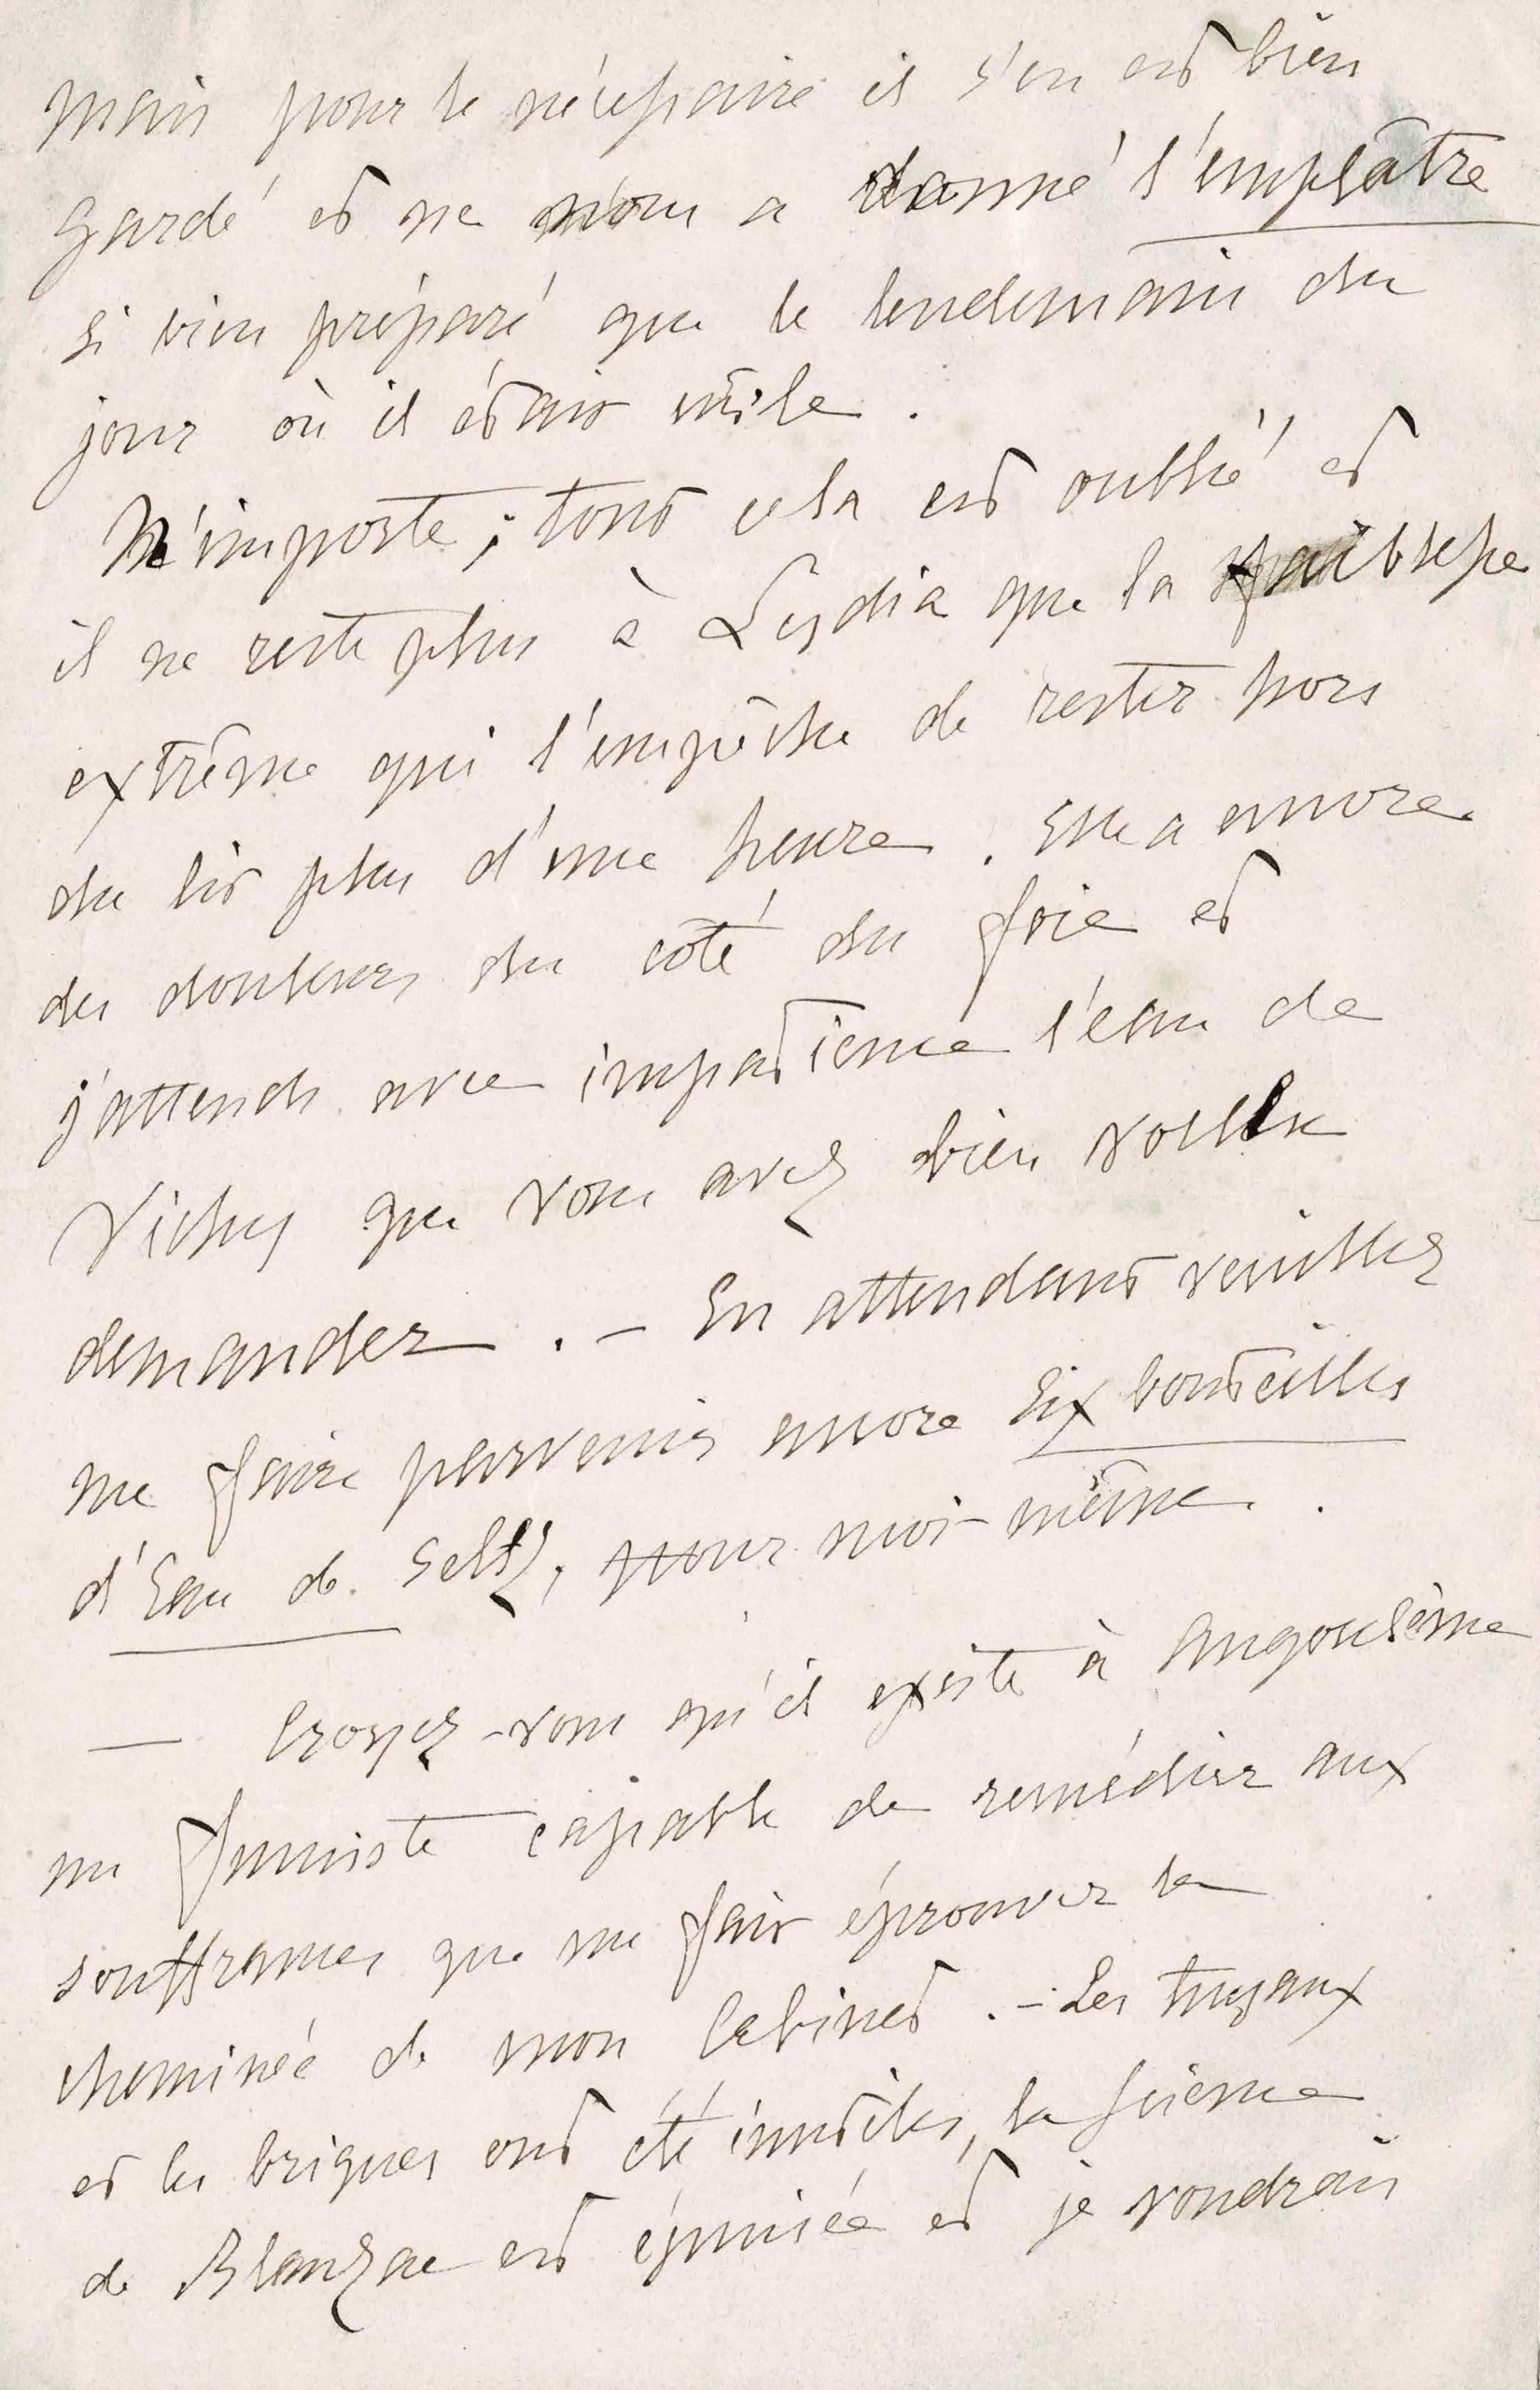 mais pour le nécessaire il s'en est bien
gardé et ne nous a donné l'emplâtre
si bien préparé que le lendemain du
jour où il était utile.
N'importe ; tout cela est oublié et
il ne reste plus à Lydia que la faiblesse
extrême qui l'empêche de rester hors
du lit plus d'une heure. Elle a encore
des douleurs du côté du foie et
j'attends avec impatience l'eau de
Vichy que vous avez bien voulu
demander. — En attendant veuillez
me faire parvenir encore six bouteilles
d'Eau de Seltz, pour moi-même.
— Croyez-vous qu'il existe à Angoulême
un fumiste capable de remédier aux
souffrances que me fait éprouver la
cheminée de mon Cabinet. — Les tuyaux
et les briques ont été inutiles, la science
de Blanzac est épuisée et je voudrais